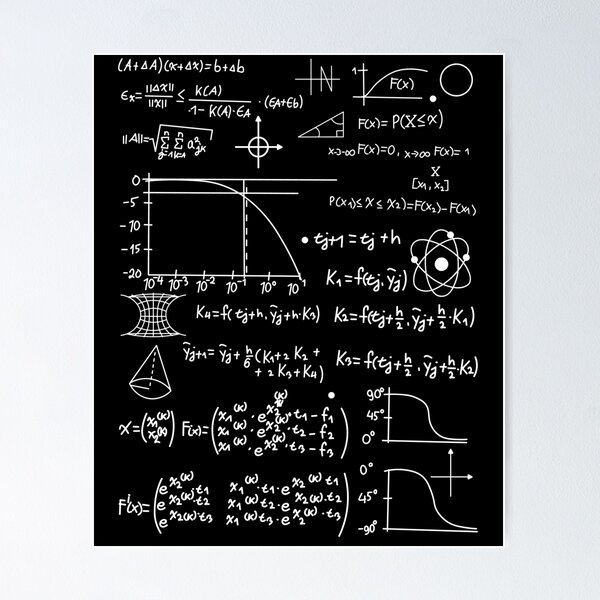 (A+ΔA)(x+Δx)=b+Δb
εx=||Δx||/||x|| ≤ K(A)/(1-K(A)·εA) · (εA+εb)
||A||=√(Σ_{j=1}^{n} Σ_{k=1}^{n} a²_{jk})
N
1
F(x)
F(x)=P(X≤x)
x→-∞ F(x)=0, x→∞ F(x)=1
X
[x1, x2]
P(x1≤X≤x2)=F(x2)-F(x1)
0
-5
-10
-15
-20
10⁻⁴ 10⁻³ 10⁻² 10⁻¹ 10⁰ 10¹
tj+1=tj+h
K1=f(tj,ỹj)
K4=f(tj+h,ỹj+h·K3)
K2=f(tj+h/2,ỹj+h/2·K1)
ỹj+1=ỹj+h/6(K1+2K2+
+2K3+K4)
K3=f(tj+h/2,ỹj+h/2·K2)
x=(x1^(k)
x2^(k))
F(x)=(x1^(k)·e^x2^(k)·t1-f1
x1^(k)·e^x2^(k)·t2-f2
x1^(k)·e^x2^(k)·t3-f3)
90°
45°
0°
F'(x)=(e^x2^(k)·t1 x1^(k)·t1·e^x2^(k)·t1
e^x2^(k)·t2 x1^(k)t2·e^x2^(k)·t2
e^x2^(k)·t3 x1^(k)t3·e^x2^(k)·t3)
0°
45°
-90°